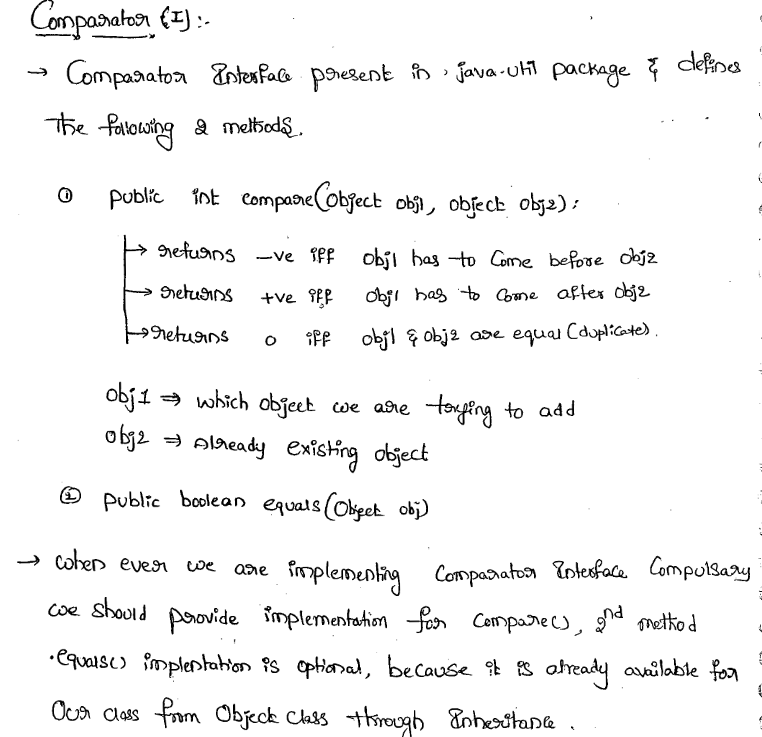 Comparator (I) :-
→ Comparator Interface present in java.util package & defines
the following 2 methods.
① public int compare(Object obj1, object obj2);
→ returns -ve iff obj1 has to come before obj2
→ returns +ve iff obj1 has to come after obj2
→ returns 0 iff obj1 & obj2 are equal (duplicate).
obj1 ⇒ which object we are trying to add
obj2 ⇒ Already existing object
② public boolean equals(Object obj)
→ when ever we are implementing Comparator Interface Compulsary
we should provide implementation for compare(), 2nd method
.equals() implentation is optional, because it is already available for
Our class from Object class through Inheritance.